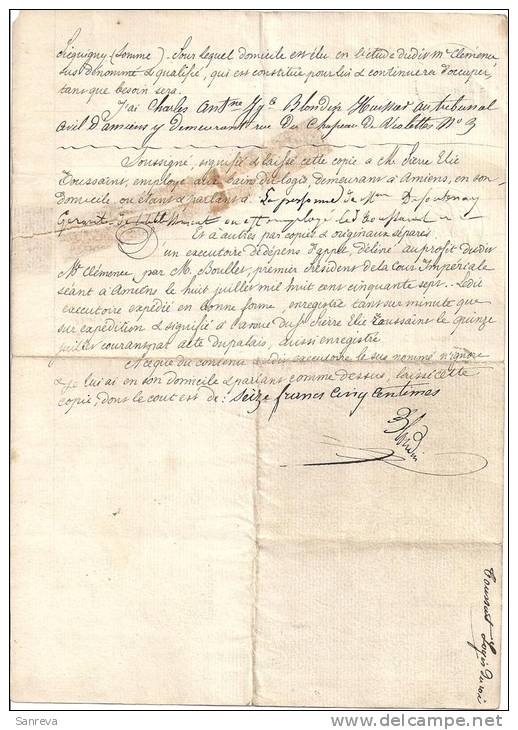 Picquigny (Somme). Pour lequel domicile est élu en l'étude dudit Me Clémence
sus dénommé & qualifié, qui est constitué pour lui & continuera d'occuper
tant que besoin sera.
J'ai Charles Antne Blondin Huissier au tribunal
civil d'amiens y demeurant rue Du Chapeau De Violettes No 3
Soussigné, signifié & laissé cette copie à M. Pierre Elie
Toussaint, employé aux bains du logis, demeurant à Amiens, en son
domicile où étant & parlant à La personne de
Gerante de
Et à autres par copies & originaux séparés
un executoire de dépens d'appel, délivré au profit dudit
Me Clémence par M. Boullet, premier président de la Cour Impériale
séant à Amiens le huit juillet mil huit cent cinquante sept. Ledit
executoire expédié en bonne forme, enregistré tant sur minute que
sur expédition & signifié à l'avoué du Sr Pierre Elie Toussaint le quinze
juillet courant par acte du palais, aussi enregistré
A ce que du contenu audit executoire le sus nommé n'ignore
& je lui ai en son domicile & parlant comme dessus, laissé cette
copie, dont le cout est de: Seize francs Cinq Centimes
Blondin
Toussaint Logis du roi
Sanreva
delcampe.net